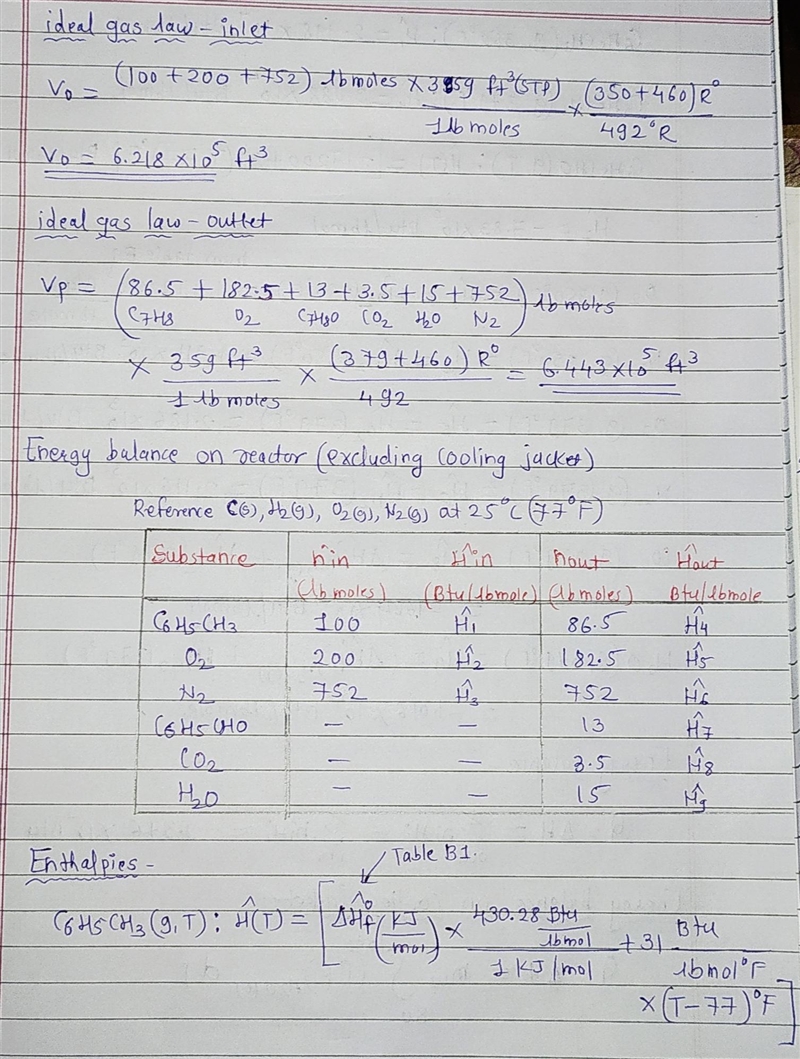 ideal gas law - inlet
V0 = (100 + 200 + 752) lb moles × 359 ft³(STP) / 1 lb moles × (350 + 460) R° / 492°R
V0 = 6.218 × 10⁵ ft³
ideal gas law - outlet
Vp = (86.5 + 182.5 + 13 + 3.5 + 15 + 752) lb moles
C7H8 O2 C7H8O CO2 H2O N2
× 359 ft³ / 1 lb moles × (379 + 460) R° / 492 = 6.443 × 10⁵ ft³
Energy balance on reactor (excluding cooling jacket)
Reference C(s), H2(g), O2(g), N2(g) at 25°C (77°F)
Substance n in Ĥin nout Ĥout
(lb moles) (Btu/lbmole) (lb moles) Btu/lbmole
C6H5CH3 100 Ĥ1 86.5 Ĥ4
O2 200 Ĥ2 182.5 Ĥ5
N2 752 Ĥ3 752 Ĥ6
C6H5CHO — — 13 Ĥ7
CO2 — — 3.5 Ĥ8
H2O — — 15 Ĥ9
Enthalpies -
Table B1.
C6H5CH3(g,T): Ĥ(T) = [ΔĤf° (KJ/mol) × 430.28 Btu/lbmol / 1 KJ/mol + 31 Btu / lbmol°F
× (T - 77)°F]